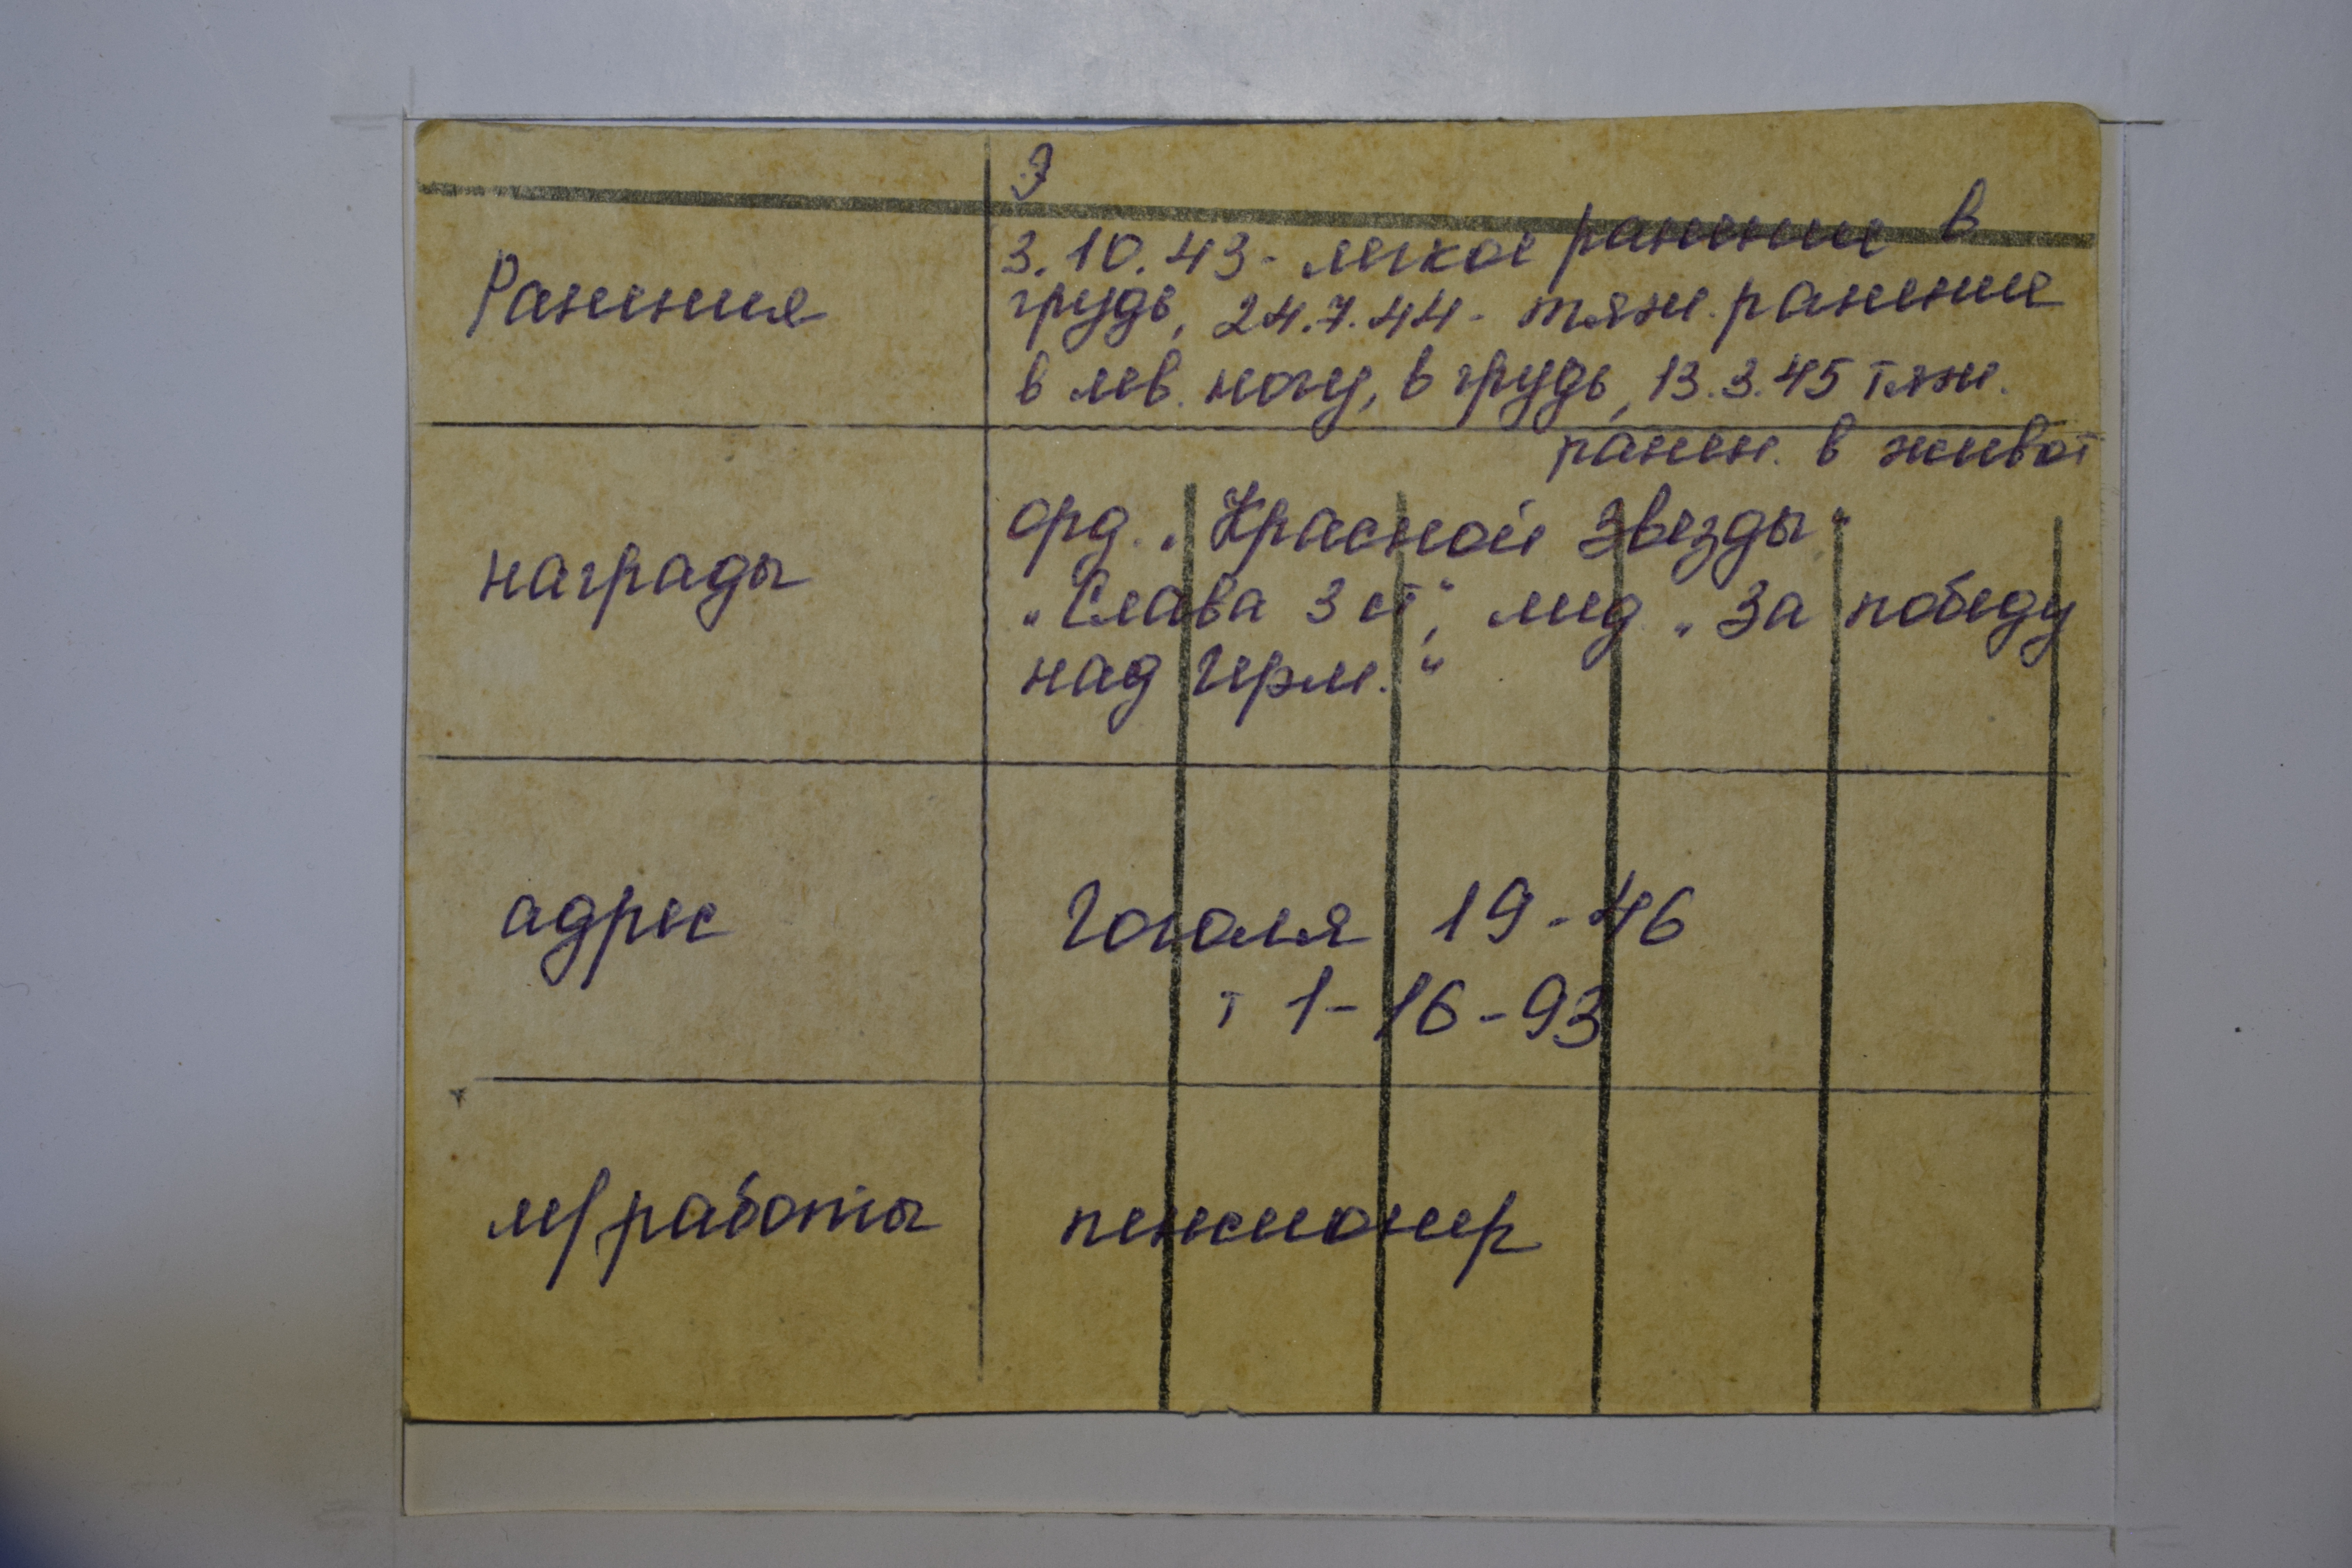 Ранения
3.10.43 - легкое ранение в
грудь, 24.7.44 - тяж. ранение
в лев. ногу, в грудь, 13.3.45 тяж.
ранен. в живот
награды
орд. „Красной Звезды"
„Слава 3 ст", мед „За победу
над Герм."
адрес
Гоголя 19-46
т 1-16-93
м/работы
пенсионер